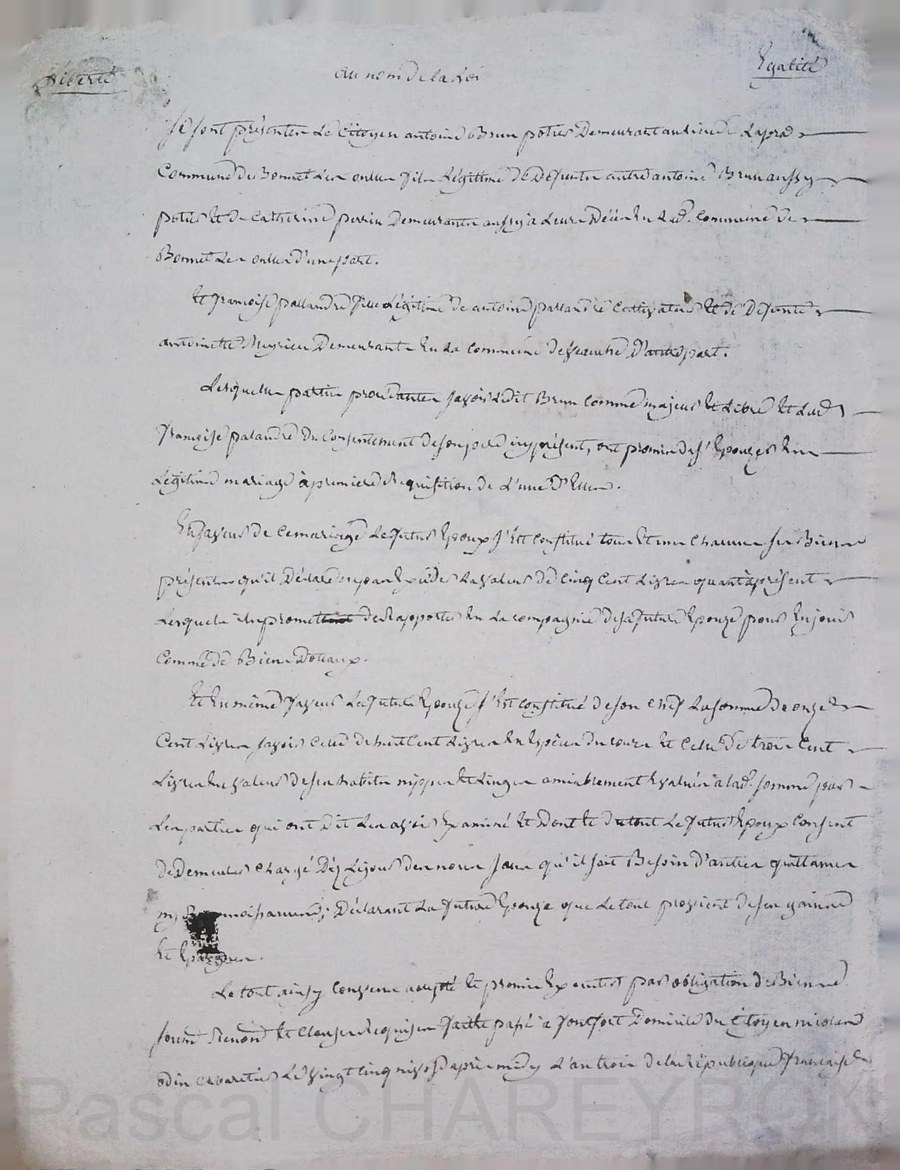 Liberté au nom de la Loi Egalité
Se sont présentés Le Citoyen antoine Brun potier Demeurant au lieu de
Commune de Bonnet Les oulles fils Légitime de Défunts autre antoine Brun aussy
potier et de Catherine perrin Demeurants aussy a Leurs Décès En Lad. Commune de
Bonnet Les oulles d'une part.
Et françoise pallandre fille Légitime de antoine pallandre Cultivateur et de Défunte
antoinette Meyrieu Demeurante En La Commune de d'autre part.
Lesquelles parties procédantes savoir Ledit Brun Comme majeur et Libre et Lad.
françoise palandre Du Consentement de son père icy présent, ont promis de s'Epouzer En
Légitime mariage à première Réquisition de L'une D'Elles.
En faveur de Ce mariage Le futur Epoux s'Est Constitué tous et uns Chacuns ses Biens
présents qu'il Déclare La valeur de Cinq Cent Livres quant àprésent
Lesquels il promet de Rapporter En La Compagnie de sa future Epouze pour En jouir
Comme de Biens Dotaux.
Et En même faveur La future Epouze s'Est Constitué de son Chef La somme de onze
Cent Livres savoir Celle de huit Cent Livres En Espèces du cours et Celle de trois Cent
Livres En valeur de ses habits nippes et Linges amiablement Evalués a lad. somme par
Les parties qui ont Dit Les avoir Examiné et Dont et du tout Le futur Epoux Consent
de Demeurer Chargé Dèz Le jour des noces sans qu'il soit Besoin d'autres quittances
ny Déclarant La future Epouze que Le tout provient de ses gaines
et Epargnes.
Le tout ainsy Convenu accepté et promis Exécuter par obligation de Biens
soumis Renoncé et Clauses Requises faitte passé a Domicile du Citoyen nicolas
odin Cabaretier Le vingt Cinq après midy L'an trois de la république française
Pascal CHAREYRON